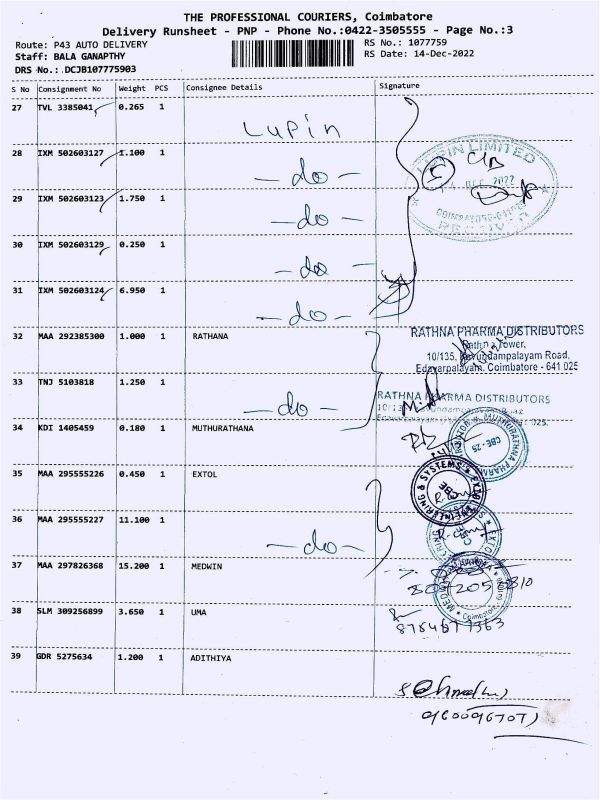 THE PROFESSIONAL COURIERS, Coimbatore
Delivery Runsheet - PNP - Phone No.:0422-3505555 - Page No.:3
Route: P43 AUTO DELIVERY
RS No.: 1077759
Staff: BALA GANAPTHY
RS Date: 14-Dec-2022
DRS No.: DCJB107775903
S No Consignment No Weight PCS Consignee Details Signature
27 TVL 3385041 0.265 1
Lupin
28 IXM 502603127 1.100 1
- do -
29 IXM 502603123 1.750 1
- do -
30 IXM 502603129 0.250 1
- do -
31 IXM 502603124 6.950 1
- do -
LUPIN LIMITED
DEC 2022
RECEIVED
32 MAA 292385300 1.000 1 RATHANA
RATHNA PHARMA DISTRIBUTORS
Rathna Tower,
10/135, Road,
Edayarpalayam, Coimbatore - 641 025
33 TNJ 5103818 1.250 1
- do -
RATHNA PHARMA DISTRIBUTORS
34 KDI 1405459 0.180 1 MUTHURATHANA
MUTHURATHNA PHARM
CBE - 25
35 MAA 295555226 0.450 1 EXTOL
36 MAA 295555227 11.100 1
- do -
37 MAA 297826368 15.200 1 MEDWIN
38 SLM 309256899 3.650 1 UMA
39 GDR 5275634 1.200 1 ADITHIYA